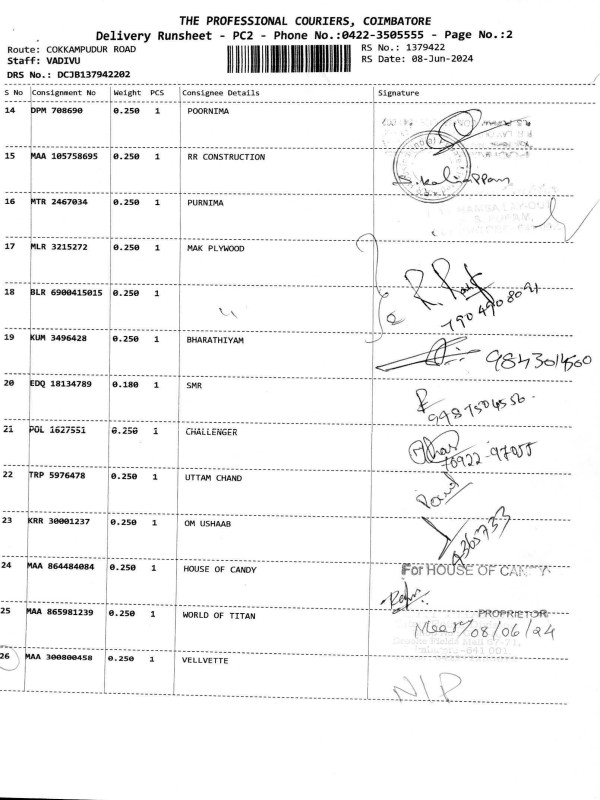 THE PROFESSIONAL COURIERS, COIMBATORE
Delivery Runsheet - PC2 - Phone No.:0422-3505555 - Page No.:2
Route: COKKAMPUDUR ROAD
RS No.: 1379422
Staff: VADIVU
RS Date: 08-Jun-2024
DRS No.: DCJB137942202
S No Consignment No Weight PCS Consignee Details Signature
14 DPM 708690 0.250 1 POORNIMA
15 MAA 105758695 0.250 1 RR CONSTRUCTION
S.Kaliappan
16 MTR 2467034 0.250 1 PURNIMA
17 MLR 3215272 0.250 1 MAK PLYWOOD
18 BLR 6900415015 0.250 1
7904908091
19 KUM 3496428 0.250 1 BHARATHIYAM
9843014500
20 EDQ 18134789 0.180 1 SMR
9987504556
21 POL 1627551 0.250 1 CHALLENGER
70922-97055
22 TRP 5976478 0.250 1 UTTAM CHAND
23 KRR 30001237 0.250 1 OM USHAAB
24 MAA 864484084 0.250 1 HOUSE OF CANDY
For HOUSE OF CANDY
25 MAA 865981239 0.250 1 WORLD OF TITAN
PROPRIETOR
08/06/24
26 MAA 300800458 0.250 1 VELLVETTE
N/P